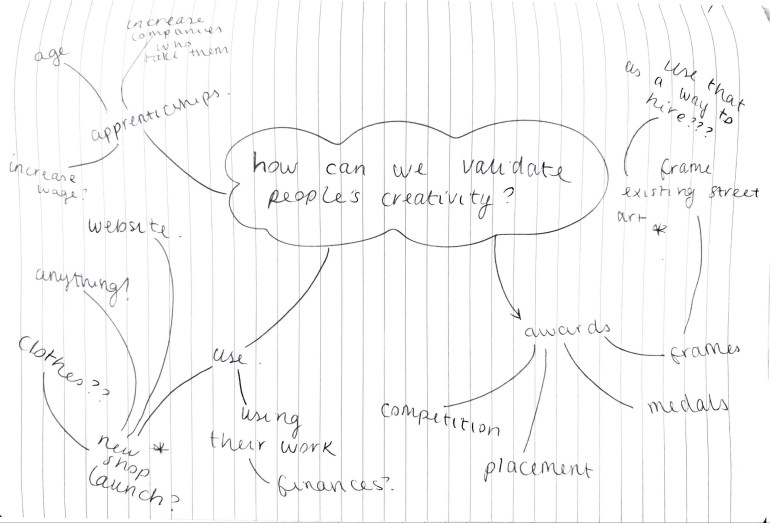 increase
companies
who
take them
age
apprenticships.
increase
wage?
how can we validate
people's creativity?
use that
as a way to
hire???
frame
existing street
art *
website.
anything!
clothes??
new *
shop
launch?
use.
using
their work
finances?
awards
competition
placement
medals
frames